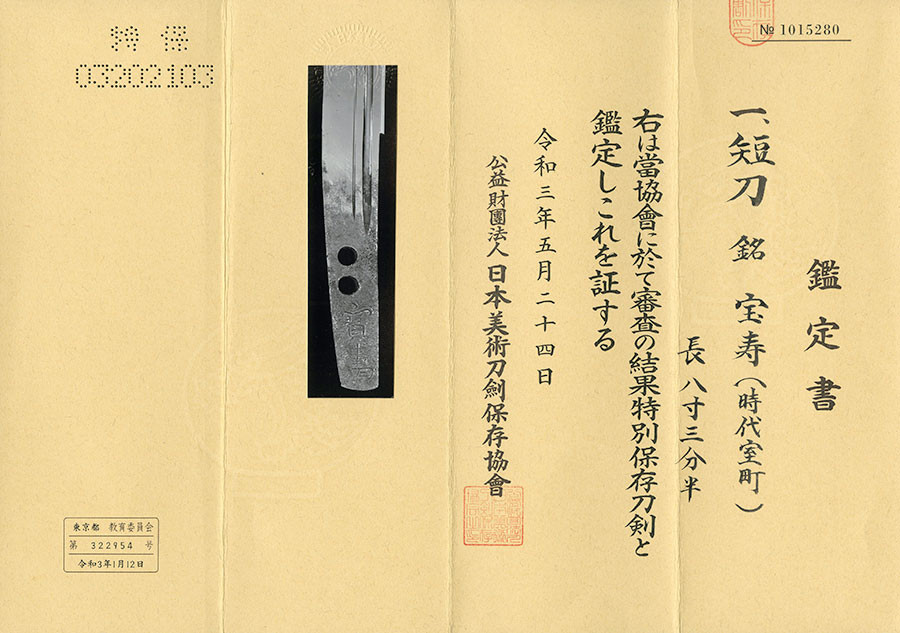 № 1015280
鑑定書
一、短刀 銘 宝寿(時代室町)
長 八寸三分半
右は當協會に於て審査の結果特別保存刀剣と
鑑定しこれを証する
令和三年五月二十四日
公益財團法人 日本美術刀劍保存協會
特保
03202103
東京都 教育委員会
第 322954 号
令和3年1月12日